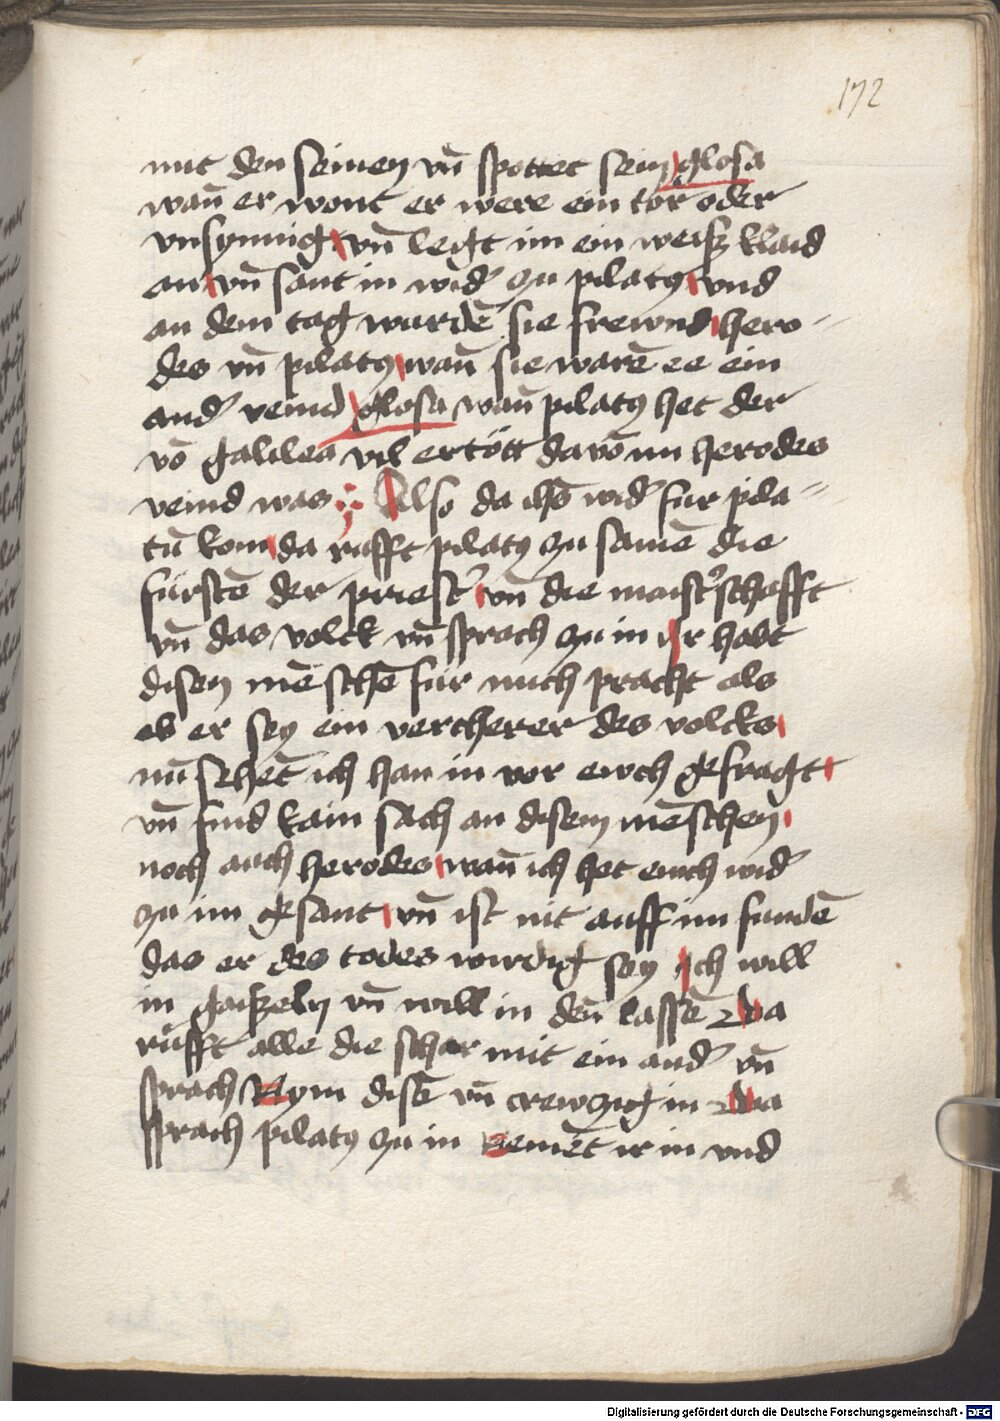 172
mit den seinen vn̄ spottet sein glosa
wan̄ er wont er were ein tor oder
vnsynnig vn̄ legt im ein weisz klaid
an vn̄ sant in wid' zu pilatꝰ vnd
an dem tag wurdē sie frewnd hero=
des vn̄ pilatꝰ wan̄ sie warē ee ein
and' veind glosa wan̄ pilatꝰ het der
vō galilea vil ertött davō im herodes
veind was Also da ihs̄ wid' fur pila=
tū kom da rufft pilatꝰ zu samē die
fürstē der priest' vn̄ die maist'schafft
vn̄ das volck vn̄ sprach zu in Ir habt
disen mēschē für mich pracht als
ob er sey ein vercherer des volcks
nu sehēt ich han in vor ewch gefragt
vn̄ find kain sach an disem mēschen
noch auch herodes wan̄ ich het euch wid'
zu im gesant vn̄ ist nit auff im fundē
das er des todes wirdig sey Ich will
in gaiszeln vn̄ will in den̄ lassē Da
rufft alle die schar mit ein and' vn̄
sprach Nym disē vn̄ crewczig in Da
sprach pilatꝰ zu in Nemēt ir in vnd
Digitalisierung gefördert durch die Deutsche Forschungsgemeinschaft - DFG